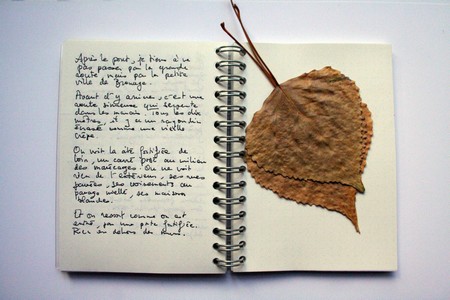 Après le pont, je tiens à ne
pas passer par la grande
route, mais par la petite
ville de Brouage.
Avant d'y arriver, c'est une
route sinueuse qui serpente
dans les marais, tous les dix
mètres, il y a un ragondin
écrasé comme une vieille
crêpe.
On voit la cité fortifiée de
loin, un carré posé au milieu
des marécages. On ne voit
rien de l'extérieur, ses rues
pavées, ses
pavage, ses maisons
blanches.
Et on ressort comme on est
entré, par une porte fortifiée.
Rien en dehors des murs.